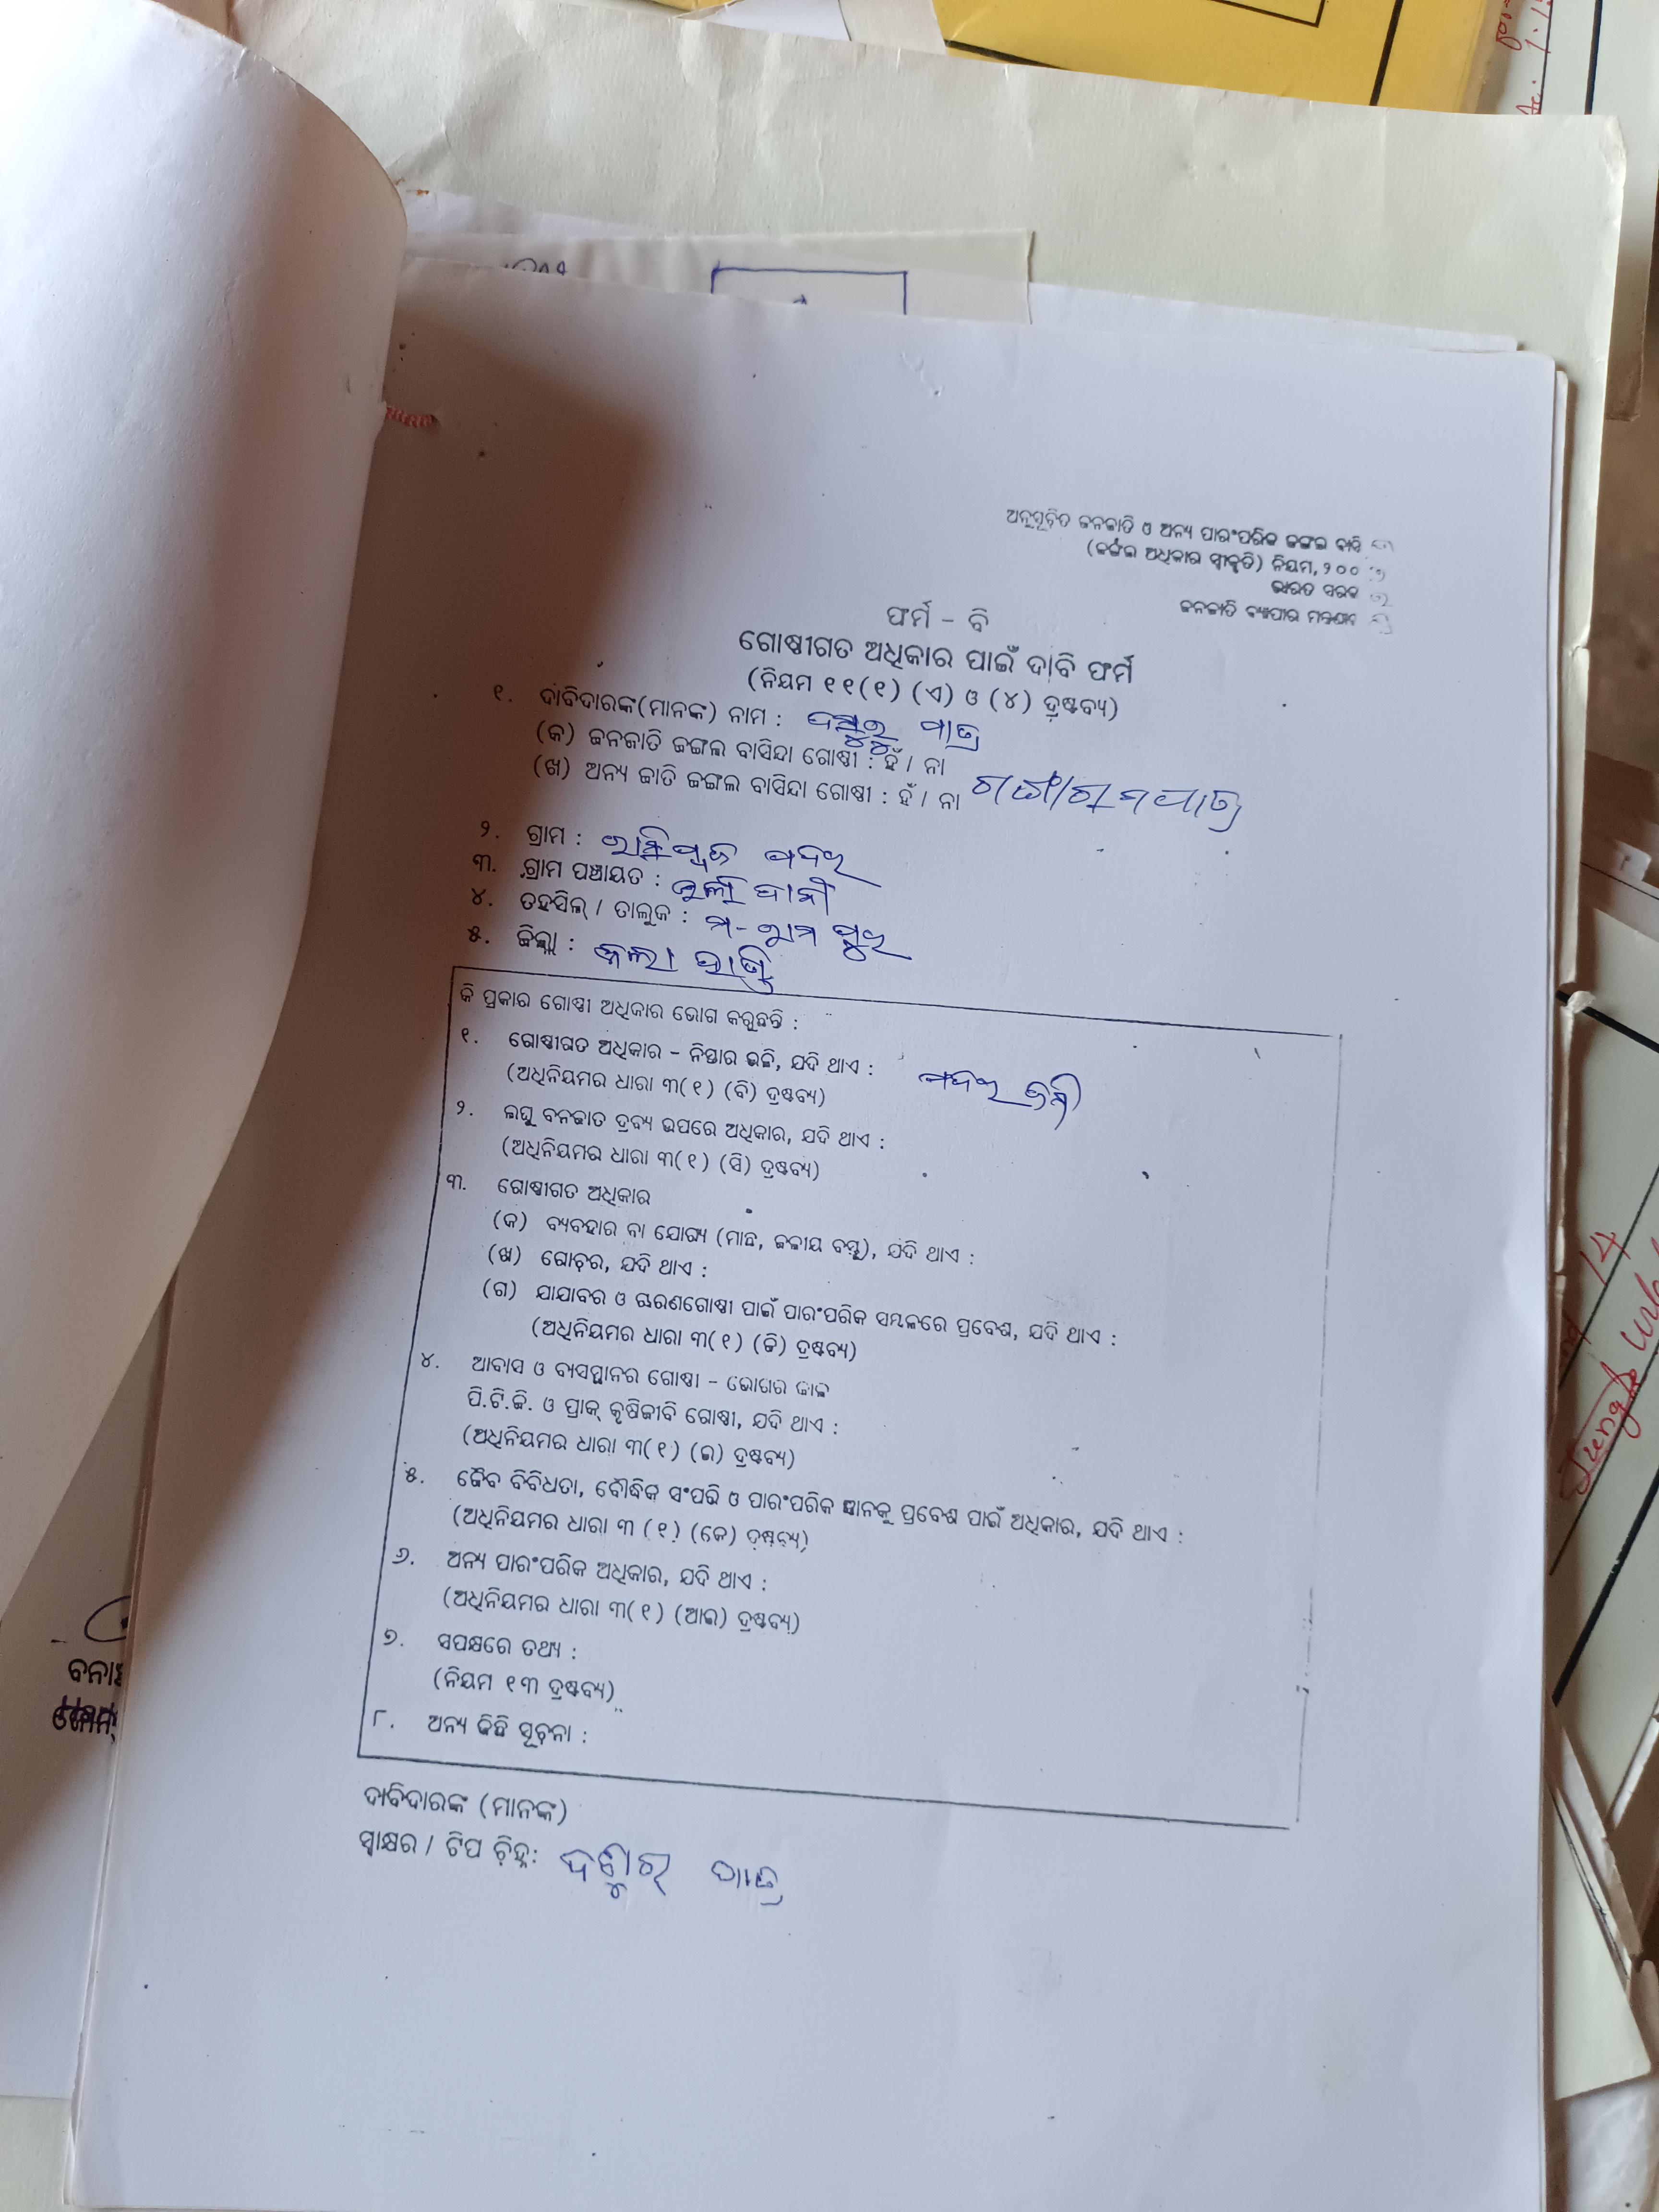 ଅନୁସୂଚିତ ଜନଜାତି ଓ ଅନ୍ୟ ପାରଂପରିକ ଜଙ୍ଗଲ ବାସି
(ଜଙ୍ଗଲ ଅଧିକାର ସ୍ୱୀକୃତି) ନିୟମ, ୨୦୦
ଭାରତ ସରକ
ଜନଜାତି ବ୍ୟାପାର
ଫର୍ମ - ବି
ଗୋଷ୍ଠୀଗତ ଅଧିକାର ପାଇଁ ଦାବି ଫର୍ମ
(ନିୟମ ୧୧(୧) (ଏ) ଓ (୪) ଦ୍ରଷ୍ଟବ୍ୟ)
୧. ଦାବିଦାରଙ୍କ(ମାନଙ୍କ) ନାମ : ପାତ୍ର
(କ) ଜନଜାତି ଜଙ୍ଗଲ ବାସିନ୍ଦା ଗୋଷ୍ଠୀ : ହଁ / ନା
(ଖ) ଅନ୍ୟ ଜାତି ଜଙ୍ଗଲ ବାସିନ୍ଦା ଗୋଷ୍ଠୀ : ହଁ / ନା
୨. ଗ୍ରାମ :
୩. ଗ୍ରାମ ପଞ୍ଚାୟତ :
୪. ତହସିଲ୍ / ତାଲୁକ : ମ-ରାମପୁର
୫. ଜିଲ୍ଲା : କଳାହାଣ୍ଡି
କି ପ୍ରକାର ଗୋଷ୍ଠୀ ଅଧିକାର ଭୋଗ କରୁଛନ୍ତି :
୧. ଗୋଷ୍ଠୀଗତ ଅଧିକାର - ନିସ୍ତାର ଭଳି, ଯଦି ଥାଏ :
(ଅଧିନିୟମର ଧାରା ୩(୧) (ବି) ଦ୍ରଷ୍ଟବ୍ୟ)
୨. ଲଘୁ ବନଜାତ ଦ୍ରବ୍ୟ ଉପରେ ଅଧିକାର, ଯଦି ଥାଏ :
(ଅଧିନିୟମର ଧାରା ୩(୧) (ସି) ଦ୍ରଷ୍ଟବ୍ୟ)
୩. ଗୋଷ୍ଠୀଗତ ଅଧିକାର
(କ) ବ୍ୟବହାର ବା ଯୋଗ୍ୟ (ମାଛ, ଜଳୀୟ ବସ୍ତୁ), ଯଦି ଥାଏ :
(ଖ) ଗୋଚର, ଯଦି ଥାଏ :
(ଗ) ଯାଯାବର ଓ ଚାରଣଗୋଷ୍ଠୀ ପାଇଁ ପାରଂପରିକ ସମ୍ବଳରେ ପ୍ରବେଶ, ଯଦି ଥାଏ :
(ଅଧିନିୟମର ଧାରା ୩(୧) (ଡି) ଦ୍ରଷ୍ଟବ୍ୟ)
୪. ଆବାସ ଓ ବ୍ୟସସ୍ଥାନର ଗୋଷ୍ଠୀ - ଭୋଗର କାଳ
ପି.ଟି.ଜି. ଓ ପ୍ରାକ୍ କୃଷିଜୀବି ଗୋଷ୍ଠୀ, ଯଦି ଥାଏ :
(ଅଧିନିୟମର ଧାରା ୩(୧) (ଇ) ଦ୍ରଷ୍ଟବ୍ୟ)
୫. ଜୈବ ବିବିଧତା, ବୌଦ୍ଧିକ ସଂପତ୍ତି ଓ ପାରଂପରିକ ଜ୍ଞାନକୁ ପ୍ରବେଶ ପାଇଁ ଅଧିକାର, ଯଦି ଥାଏ :
(ଅଧିନିୟମର ଧାରା ୩ (୧) (କେ) ଦ୍ରଷ୍ଟବ୍ୟ)
୬. ଅନ୍ୟ ପାରଂପରିକ ଅଧିକାର, ଯଦି ଥାଏ :
(ଅଧିନିୟମର ଧାରା ୩(୧) (ଆଇ) ଦ୍ରଷ୍ଟବ୍ୟ)
୭. ସପକ୍ଷରେ ତଥ୍ୟ :
(ନିୟମ ୧୩ ଦ୍ରଷ୍ଟବ୍ୟ)
୮. ଅନ୍ୟ କିଛି ସୂଚନା :
ଦାବିଦାରଙ୍କ (ମାନଙ୍କ)
ସ୍ୱାକ୍ଷର / ଟିପ ଚିହ୍ନ: ପାତ୍ର